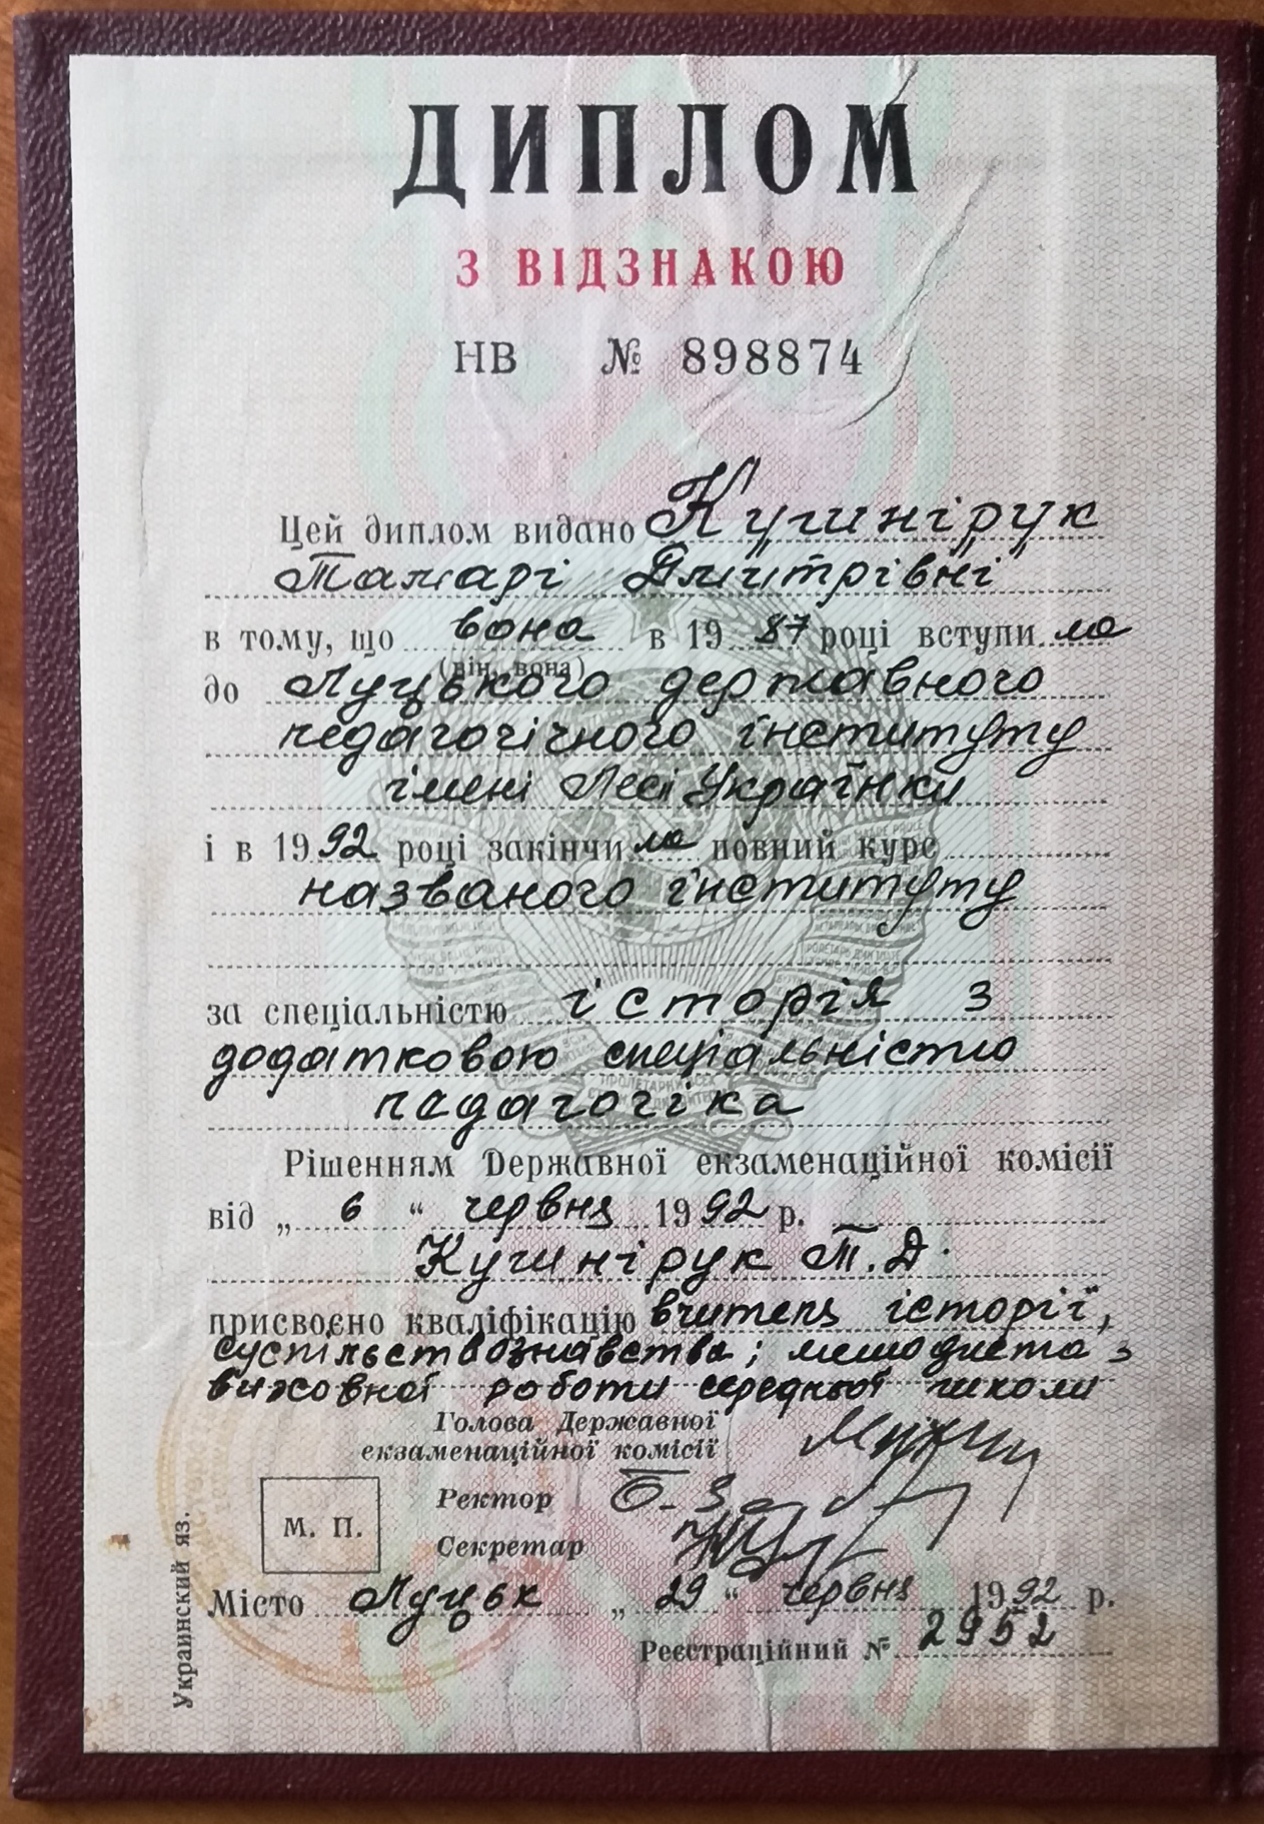 ДИПЛОМ
З ВІДЗНАКОЮ
НВ № 898874
Цей диплом видано Кушнірук
Тамарі Дмитрівні
в тому, що вона в 19 87 році вступи ла
(він, вона)
до Луцького державного
педагогічного інституту
імені Лесі Українки
і в 19 92 році закінчи ла повний курс
названого інституту
за спеціальністю історія з
додатковою спеціальністю
педагогіка
Рішенням Державної екзаменаційної комісії
від „ 6 “ червня 19 92 р.
Кушнірук Т.Д.
присвоєно кваліфікацію вчителя історії,
суспільствознавства; методиста з
виховної роботи середньої школи
Голова Державної
екзаменаційної комісії
Ректор
Секретар
М. П.
Місто Луцьк „ 29 “ червня 19 92 р.
Реєстраційний № 2952
Украинский яз.